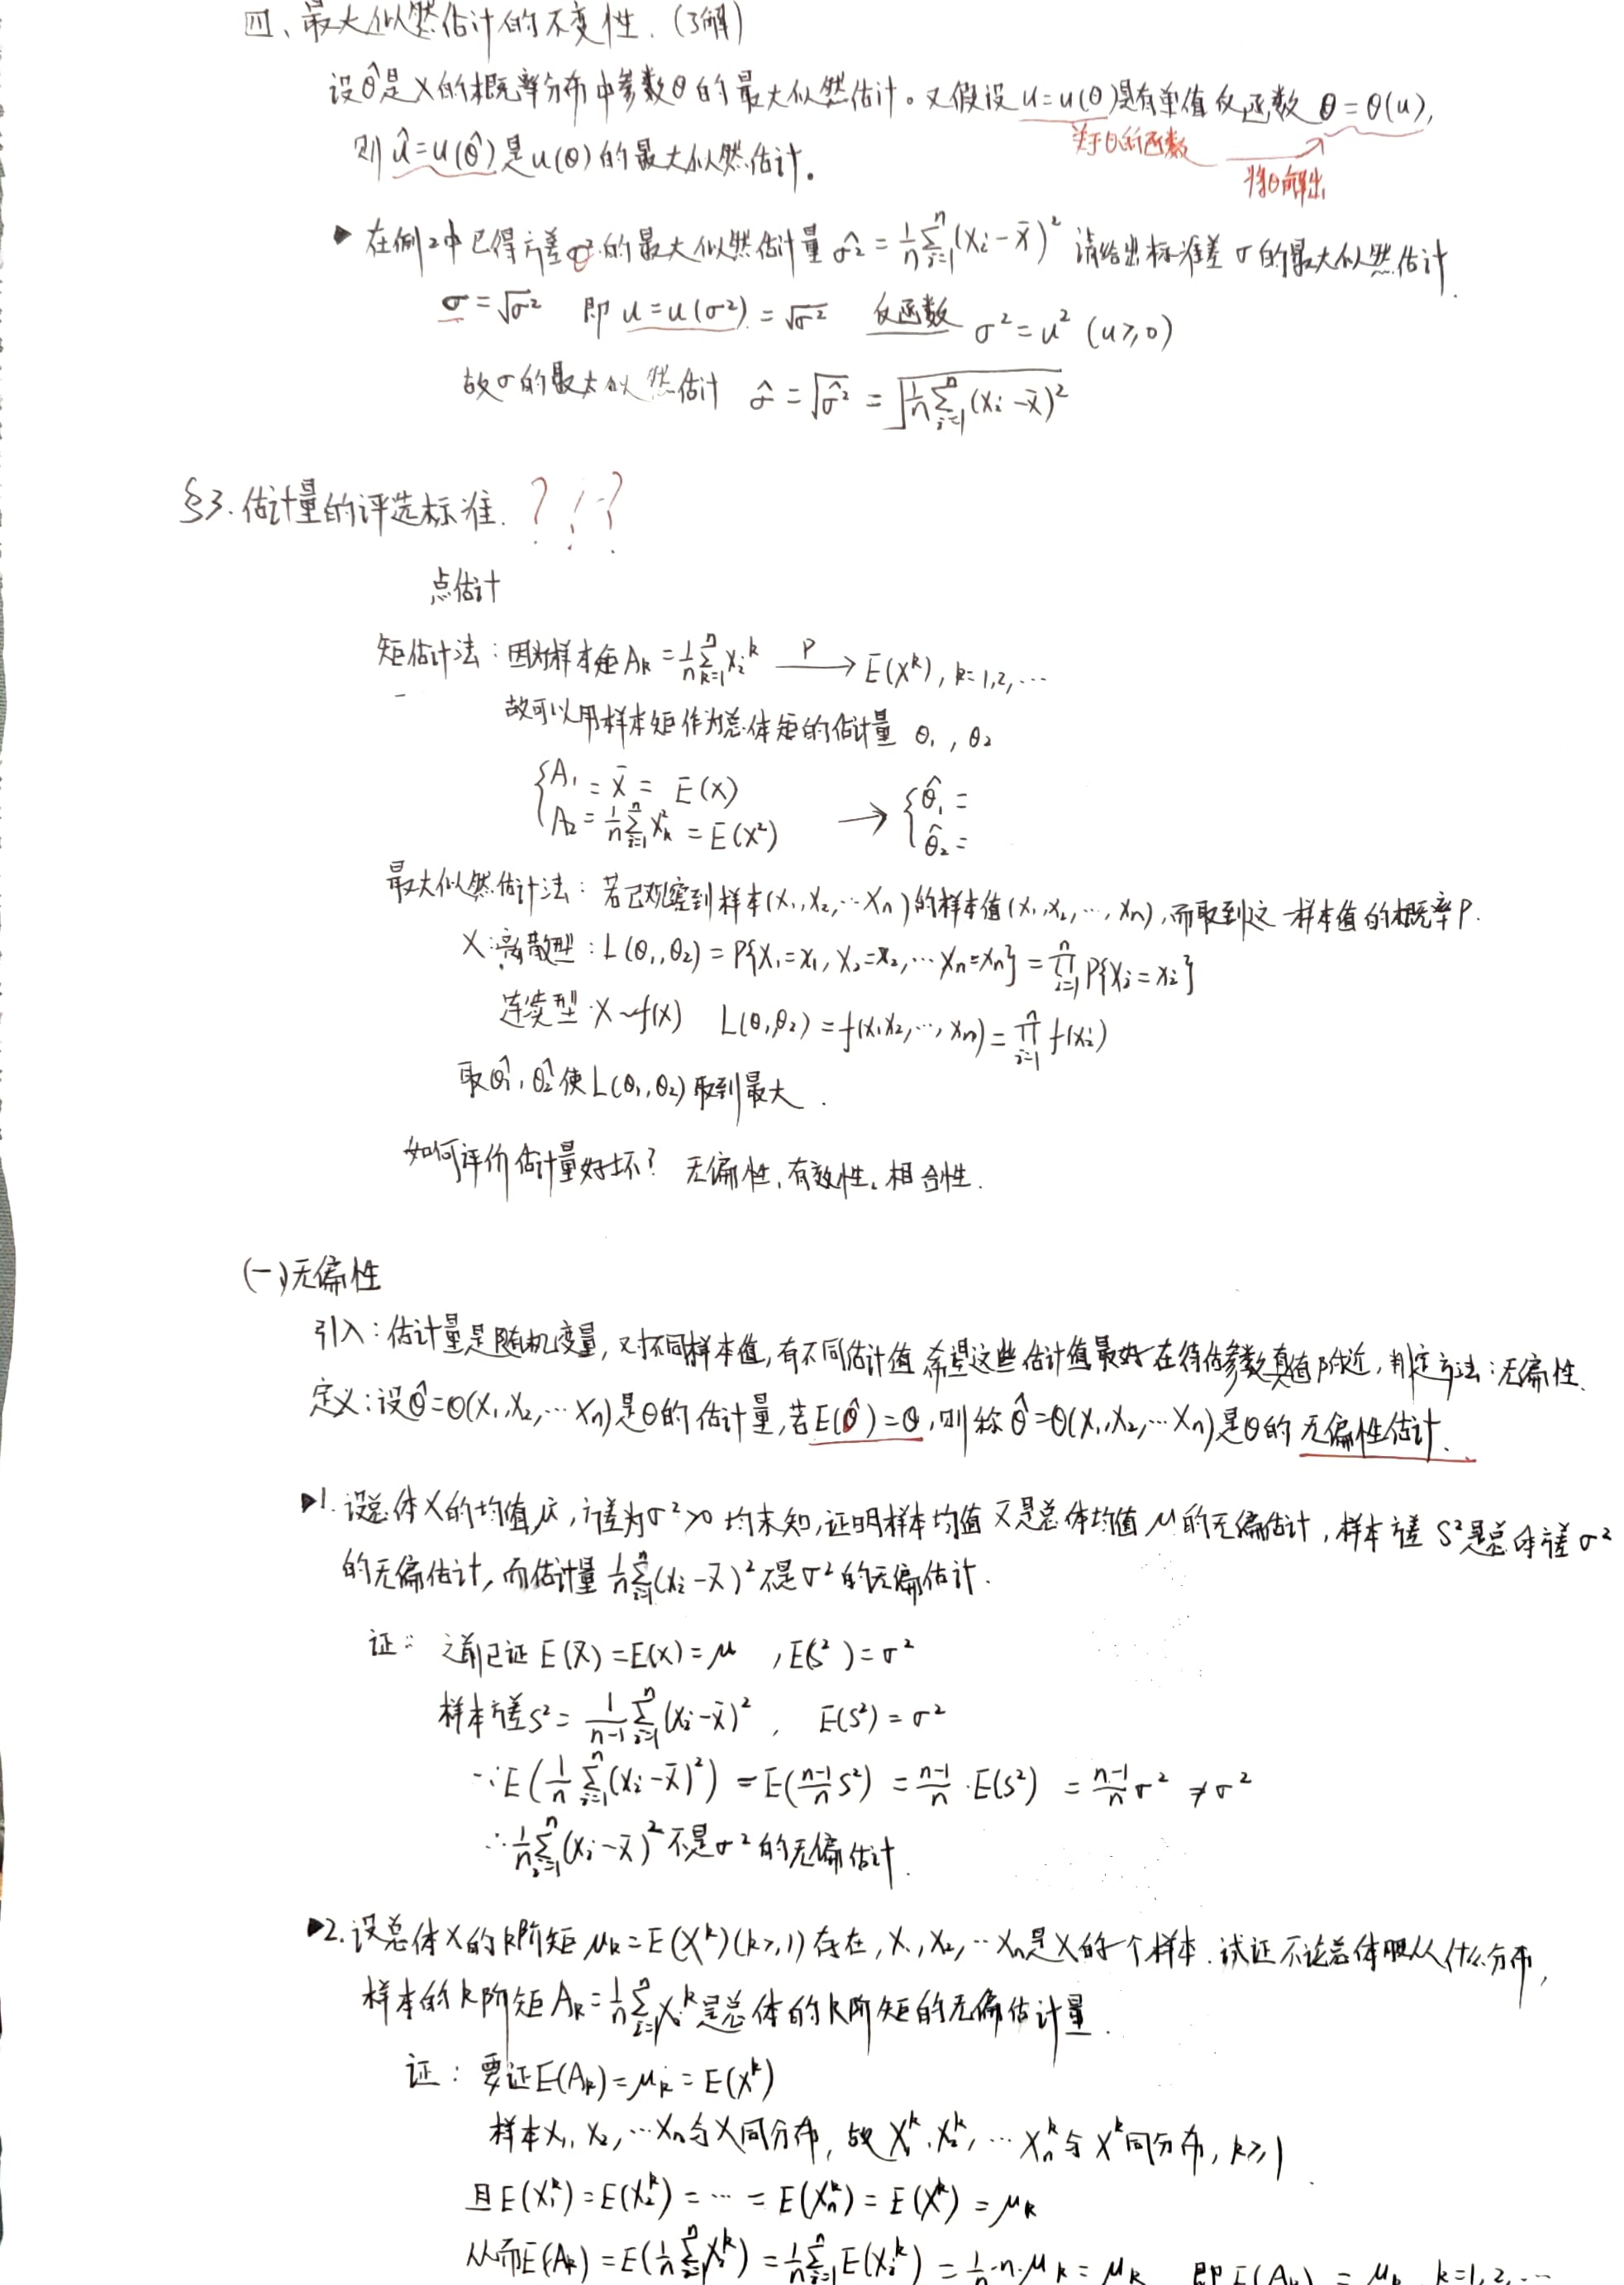 四、最大似然估计的不变性.(了解)
设θ̂是X的概率分布中参数θ的最大似然估计。又假设u=u(θ)是有单值反函数 θ=θ(u),
关于θ的函数
则 û=u(θ̂)是u(θ)的最大似然估计。
将θ解出
▶ 在例2中已得方差σ²的最大似然估计量 σ̂²=1/n∑ᵢ₌₁ⁿ(Xᵢ-X̄)² 请给出标准差σ的最大似然估计.
σ=√σ² 即 u=u(σ²)=√σ² 反函数 σ²=u² (u≥0)
故σ的最大似然估计 σ̂=√σ̂²=√(1/n∑ᵢ₌₁ⁿ(Xᵢ-X̄)²)
§3.估计量的评选标准. ?!?
点估计
矩估计法:因为样本矩Aₖ=1/n∑ₖ₌₁ⁿXᵢᵏ —P→ E(Xᵏ), k=1,2,…
故可以用样本矩作为总体矩的估计量 θ₁, θ₂
{A₁=X̄=E(X)
A₂=1/n∑ᵢ₌₁ⁿXₖ²=E(X²) → {θ̂₁=
θ̂₂=
最大似然估计法:若已观察到样本(X₁,X₂,…Xn)的样本值(x₁,x₂,…,xn),而取到这一样本值的概率P.
X:离散型:L(θ₁,θ₂)=P{X₁=x₁,X₂=x₂,…Xn=xn}=∏ᵢ₌₁ⁿP{Xᵢ=xᵢ}
连续型:X~f(x) L(θ₁,θ₂)=f(x₁,x₂,…,xn)=∏ᵢ₌₁ⁿf(xᵢ)
取θ̂₁,θ̂₂使L(θ₁,θ₂)取到最大.
如何评价估计量好坏? 无偏性、有效性、相合性.
(一)无偏性
引入:估计量是随机变量,对不同样本值,有不同估计值,希望这些估计值最好在待估参数真值附近,判定方法:无偏性.
定义:设θ̂=θ(X₁,X₂,…Xn)是θ的估计量,若E(θ̂)=θ,则称θ̂=θ(X₁,X₂,…Xn)是θ的无偏性估计.
▶1.设总体X的均值μ,方差为σ²>0 均未知,证明样本均值X̄是总体均值μ的无偏估计,样本方差S²是总体方差σ²
的无偏估计,而估计量1/n∑ᵢ₌₁ⁿ(Xᵢ-X̄)²不是σ²的无偏估计.
证: 之前已证E(X̄)=E(X)=μ ,E(S²)=σ²
样本方差S²=1/(n-1)∑ᵢ₌₁ⁿ(Xᵢ-X̄)², E(S²)=σ²
∵E(1/n∑ᵢ₌₁ⁿ(Xᵢ-X̄)²)=E((n-1)/n S²)=(n-1)/n·E(S²)=(n-1)/n σ²≠σ²
∴1/n∑ᵢ₌₁ⁿ(Xᵢ-X̄)²不是σ²的无偏估计.
▶2.设总体X的k阶矩μₖ=E(Xᵏ)(k≥1)存在,X₁,X₂,…Xn是X的一个样本.试证不论总体服从什么分布,
样本的k阶矩Aₖ=1/n∑ᵢ₌₁ⁿXᵢᵏ是总体的k阶矩的无偏估计量.
证:要证E(Aₖ)=μₖ=E(Xᵏ)
样本X₁,X₂,…Xn与X同分布,故X₁ᵏ,X₂ᵏ,…Xnᵏ与Xᵏ同分布,k≥1
且E(X₁ᵏ)=E(X₂ᵏ)=…=E(Xnᵏ)=E(Xᵏ)=μₖ
从而E(Aₖ)=E(1/n∑ᵢ₌₁ⁿXᵢᵏ)=1/n∑ᵢ₌₁ⁿE(Xᵢᵏ)=1/n·n·μₖ=μₖ 即E(Aₖ)=μₖ k=1,2,…